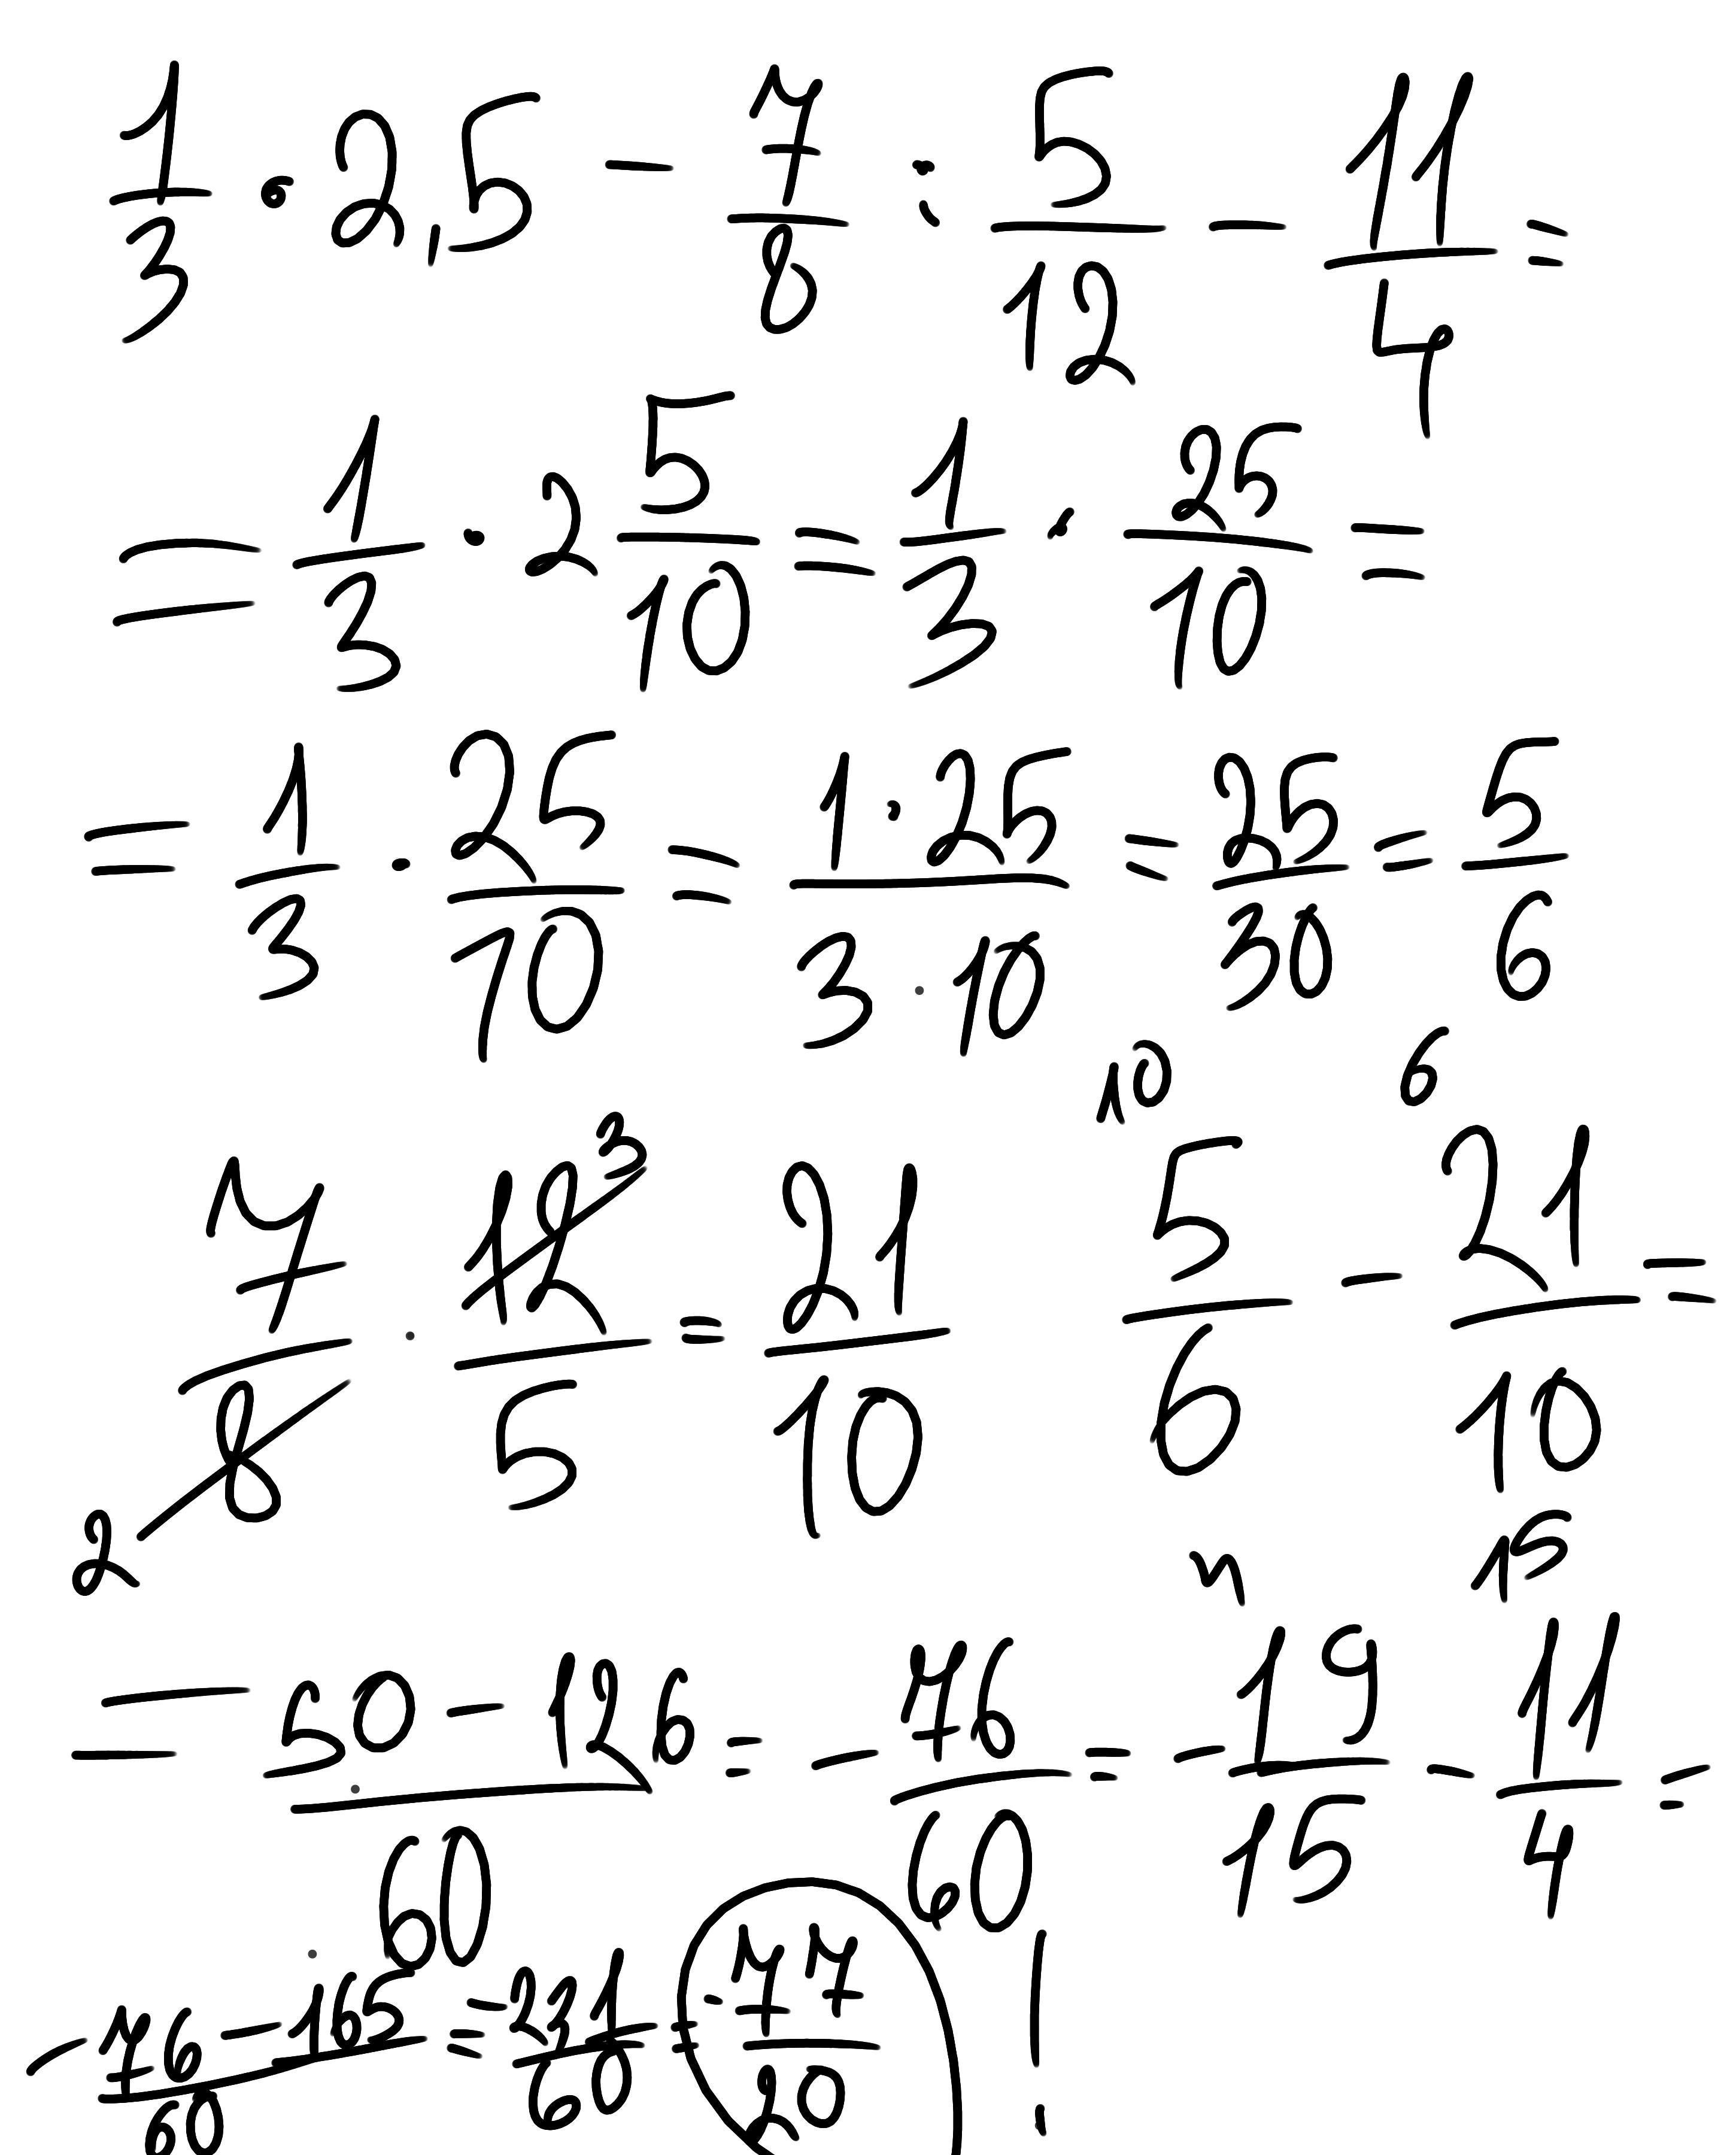 1/3 · 2,5 - 7/8 : 5/12 - 11/4 =
= 1/3 · 2 5/10 = 1/3 · 25/10 =
= 1/3 · 25/10 = 1 · 25/3 · 10 = 25/30 = 5/6
10 6
7/8 · 12/5 = 21/10 5/6 - 21/10 =
3
2
4 15
= 50 - 126/60 = - 76/60 = - 19/15 - 11/4 =
- 76 - 165/60 = - 231/60 = - 77/20 !